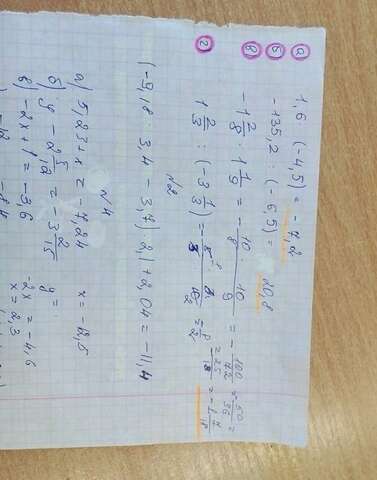 а 1,6 · (-4,5) = -7,2
б -135,2 (-6,5) = 20,8
в -1 2/8 · 1 1/9 = - 10/8 · 10/9 = - 100/72 = - 50/36 = - 25/18 = -1 7/18
г 1 2/3 : (-3 1/3) = -
№2
(-9,18 3,4 - 3,7) 2,1 + 2,04 = -11,4
№4
а) 5,23 + x = -7,24 x = -12,5
б) y - 2 5/12 = -3 2/15 y =
в) -2x + 1 = -3,6 -2x = -4,6
x = 2,3